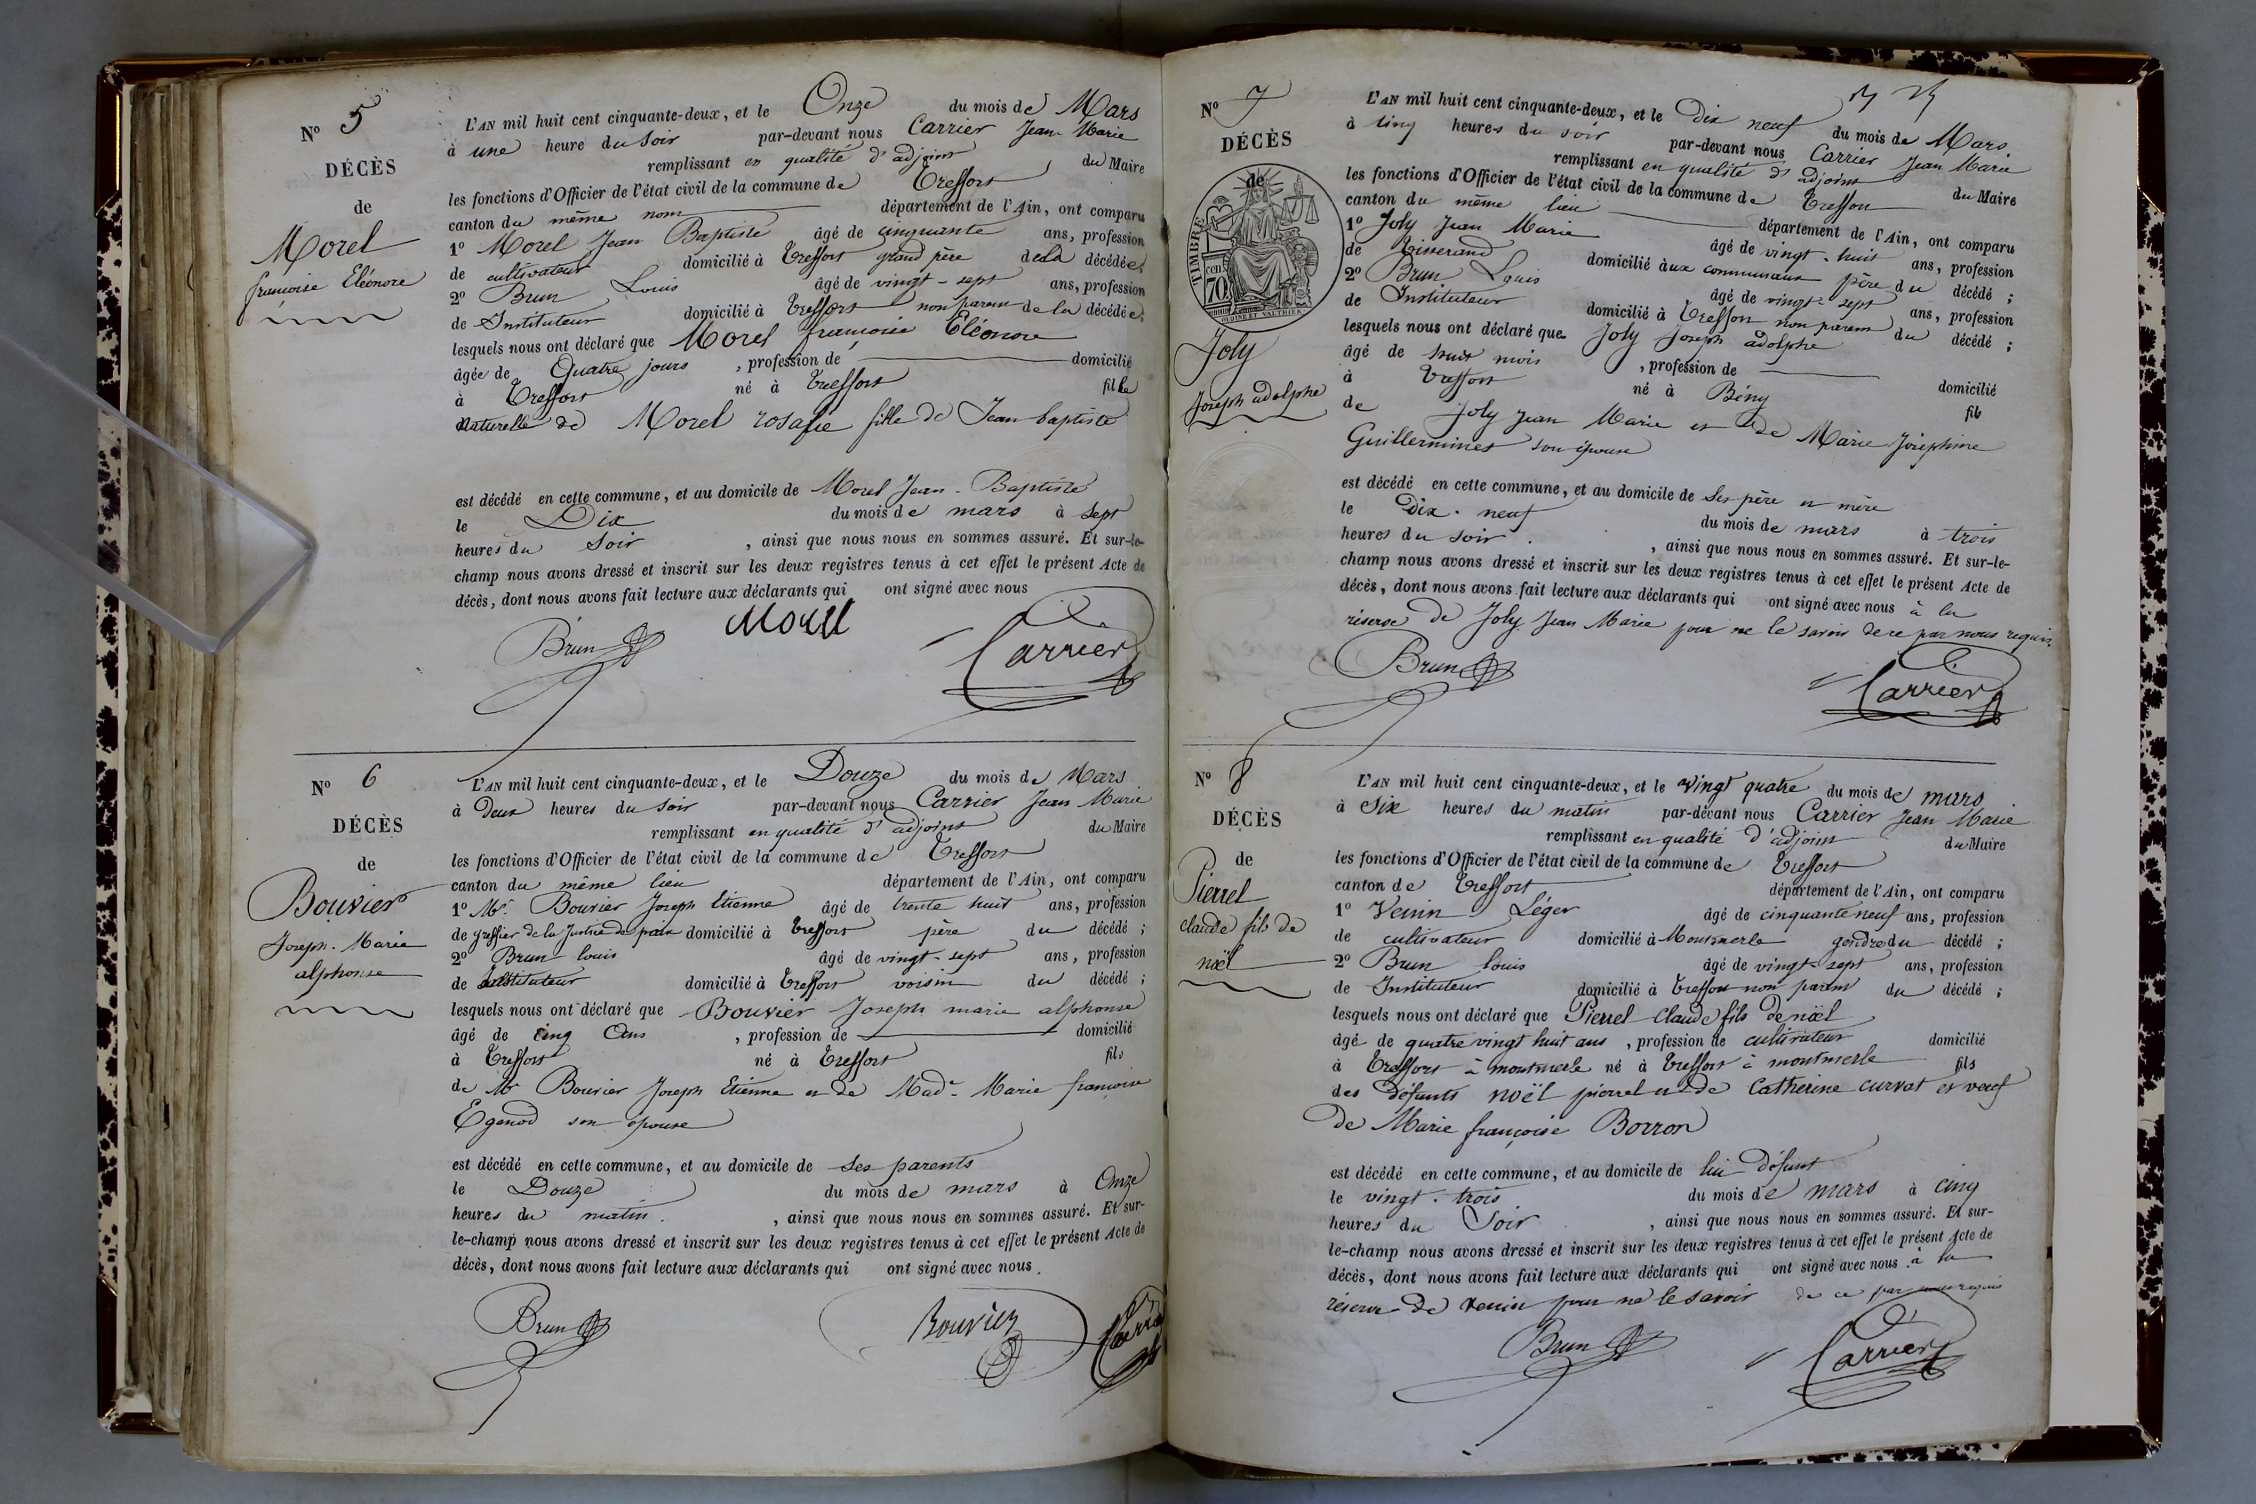 Nº 5
DÉCÈS
de
Morel
françoise Eléonore
L'AN mil huit cent cinquante-deux, et le Onze du mois de Mars
à une heure du Soir par-devant nous Carrier Jean Marie
remplissant en qualité d'adjoint du Maire
les fonctions d'Officier de l'état civil de la commune de Treffort
canton du même nom département de l'Ain, ont comparu
1º Morel Jean Baptiste âgé de cinquante ans, profession
de cultivateur domicilié à Treffort grand père de la décédée;
2º Brun Louis âgé de vingt-sept ans, profession
de Instituteur domicilié à Treffort non parent de la décédée;
lesquels nous ont déclaré que Morel françoise Eléonore
âgée de Quatre jours, profession de domicilié
à Treffort né à Treffort fille
Naturelle de Morel rosalie fille de Jean baptiste
est décédé en cette commune, et au domicile de Morel Jean-Baptiste
le Dix du mois de mars à Sept
heures du Soir, ainsi que nous nous en sommes assuré. Et sur-le-
champ nous avons dressé et inscrit sur les deux registres tenus à cet effet le présent Acte de
décès, dont nous avons fait lecture aux déclarants qui ont signé avec nous
Brun Morel Carrier
Nº 6
DÉCÈS
de
Bouvier
Joseph-Marie
alphonse
L'AN mil huit cent cinquante-deux, et le Douze du mois de Mars
à Deux heures du Soir par-devant nous Carrier Jean Marie
remplissant en qualité d'adjoint du Maire
les fonctions d'Officier de l'état civil de la commune de Treffort
canton du même lieu département de l'Ain, ont comparu
1º Mr. Bouvier Joseph Etienne âgé de trente huit ans, profession
de greffier de la Justice de paix domicilié à Treffort père du décédé;
2º Brun louis âgé de vingt-sept ans, profession
de Instituteur domicilié à Treffort voisin du décédé;
lesquels nous ont déclaré que Bouvier Joseph marie alphonse
âgé de cinq Ans, profession de domicilié
à Treffort né à Treffort fils
de Mr Bouvier Joseph Etienne et de Made Marie françoise
Egenod son épouse
est décédé en cette commune, et au domicile de Ses parents
le Douze du mois de mars à Onze
heures du matin, ainsi que nous nous en sommes assuré. Et sur-
le-champ nous avons dressé et inscrit sur les deux registres tenus à cet effet le présent Acte de
décès, dont nous avons fait lecture aux déclarants qui ont signé avec nous.
Brun Bouvier Carrier
Nº 7
DÉCÈS
de
TIMBRE
70 cen
Joly
Joseph adolphe
L'AN mil huit cent cinquante-deux, et le Dix neuf du mois de Mars
à cinq heures du soir par-devant nous Carrier Jean Marie
remplissant en qualité d'adjoint du Maire
les fonctions d'Officier de l'état civil de la commune de Treffort
canton du même lieu département de l'Ain, ont comparu
1º Joly Jean Marie âgé de vingt-huit ans, profession
de Tisserand domicilié aux communaux père du décédé;
2º Brun Louis âgé de vingt-sept ans, profession
de Instituteur domicilié à Treffort non parent du décédé;
lesquels nous ont déclaré que Joly Joseph adolphe
âgé de huit mois, profession de domicilié
à Treffort né à Bény fils
de Joly Jean Marie et de Marie Joséphine
Guillerminet son épouse
est décédé en cette commune, et au domicile de Ses père et mère
le Dix-neuf du mois de mars à trois
heures du soir, ainsi que nous nous en sommes assuré. Et sur-le-
champ nous avons dressé et inscrit sur les deux registres tenus à cet effet le présent Acte de
décès, dont nous avons fait lecture aux déclarants qui ont signé avec nous à la
réserve de Joly Jean Marie pour ne le savoir de ce par nous requis
Brun Carrier
Nº 8
DÉCÈS
de
Pierrel
claude fils de
noël
L'AN mil huit cent cinquante-deux, et le vingt quatre du mois de mars
à Six heures du matin par-devant nous Carrier Jean Marie
remplissant en qualité d'adjoint du Maire
les fonctions d'Officier de l'état civil de la commune de Treffort
canton de Treffort département de l'Ain, ont comparu
1º Venin Léger âgé de cinquante neuf ans, profession
de cultivateur domicilié à Montmerle gendre du décédé;
2º Brun louis âgé de vingt-sept ans, profession
de Instituteur domicilié à Treffort non parent du décédé;
lesquels nous ont déclaré que Pierrel Claude fils de nöel
âgé de quatre vingt huit ans, profession de cultivateur domicilié
à Treffort à montmerle né à Treffort à montmerle fils
des défunts noël pierrel et de Catherine curvat et veuf
de Marie françoise Borron
est décédé en cette commune, et au domicile de lui défunt
le vingt-trois du mois de mars à cinq
heures du Soir, ainsi que nous nous en sommes assuré. Et sur-
le-champ nous avons dressé et inscrit sur les deux registres tenus à cet effet le présent Acte de
décès, dont nous avons fait lecture aux déclarants qui ont signé avec nous à la
réserve de venin pour ne le savoir de ce par nous requis
Brun Carrier